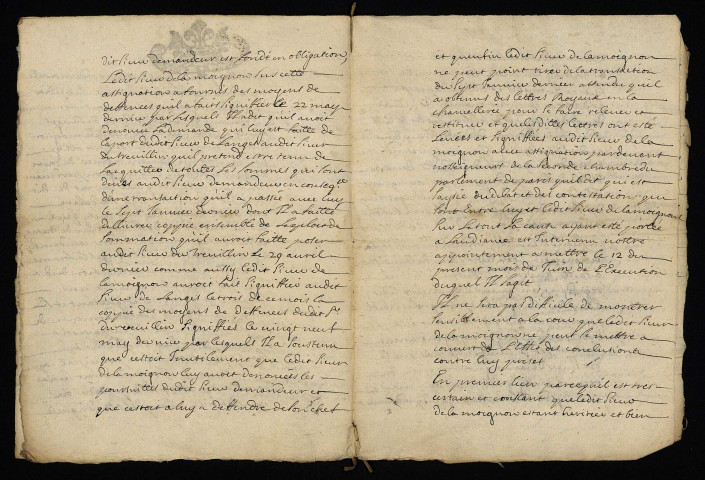 dit sieur demandeur est fondé en obligation,
Ledit sieur de la moignon sur cette
assignation a fourni des moyens de
deffences quil a fait signiffier le 22 may
dernier par lesquels Il a dit quil avoit
denoncé la demande qui luy est faitte de
la part dudit sieur de Langes audit sieur
du treuillin quil pretend estre tenu de
l'acquitter de toutes les sommes qui sont
deües audit sieur demandeur en conseqce
d'une transaction quil a passée avec luy
le sept Janvier dernier dont Il a faitte
dellivrer coppie ensemble de l'exploit de
sommation quil avoit faitte poser
audit sieur du treuillin Le 29 avril
dernier comme aussy ledit sieur de
lamoignon auroit fait signiffier audit
sieur de Langes le trois de ce mois la
coppie des moyens de deffences dudit sr
du treuillin signiffiés le vingt neuf
may dernier par lesquels Il a soustenu
que cestoit Inutilement que ledit sieur
de la moignon luy avoit denoncées les
poursuittes dudit sieur demandeur et
que cestoit a luy a deffendre de son chef
et qu'enfin ledit sieur de lamoignon
ne peut point tirer de la transaction
du sept Janvier dernier attendu quil
a obtenu des lettres Royaux en la
chancellerie pour se faire relever et
restituer et que lesdittes lettres ont esté
et signiffiées audit sieur de la
moignon avec assignation pardevant
nosseigneurs de la seconde chambre du
parlement de paris quil dit qui est
saysie du debat et des contestations qui
sont entre luy et ledit sieur de lamoignon
sur la cause ayant esté portée
a l'audiance est Intervenu nottre
appointement a mettre le 12 du
present mois de Juin de l'Execution
duquel Il sagit
Il ne sera pas difficile de montrer
sensiblement a la cour que ledit sieur
de la moignon ne peut se mettre a
couvert de l'effet des conclusions
contre luy prises
En premier lieu parcequil est tres
certain et constant que ledit sieur
de la moignon estant heritier et bien